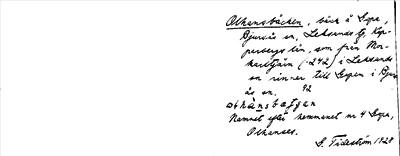 Olhansbäcken, bäck å Sopa,
Bjursås sn, Leksands tg, Kop-
parbergs län, som från Mor-
karltjärn (·242) i Leksands
sn rinner till Sopen i Bjur-
ås sn. 92
Namnet efter hemmanet nr 4 Sopa,
Olhanses.
G. Tideström 1928